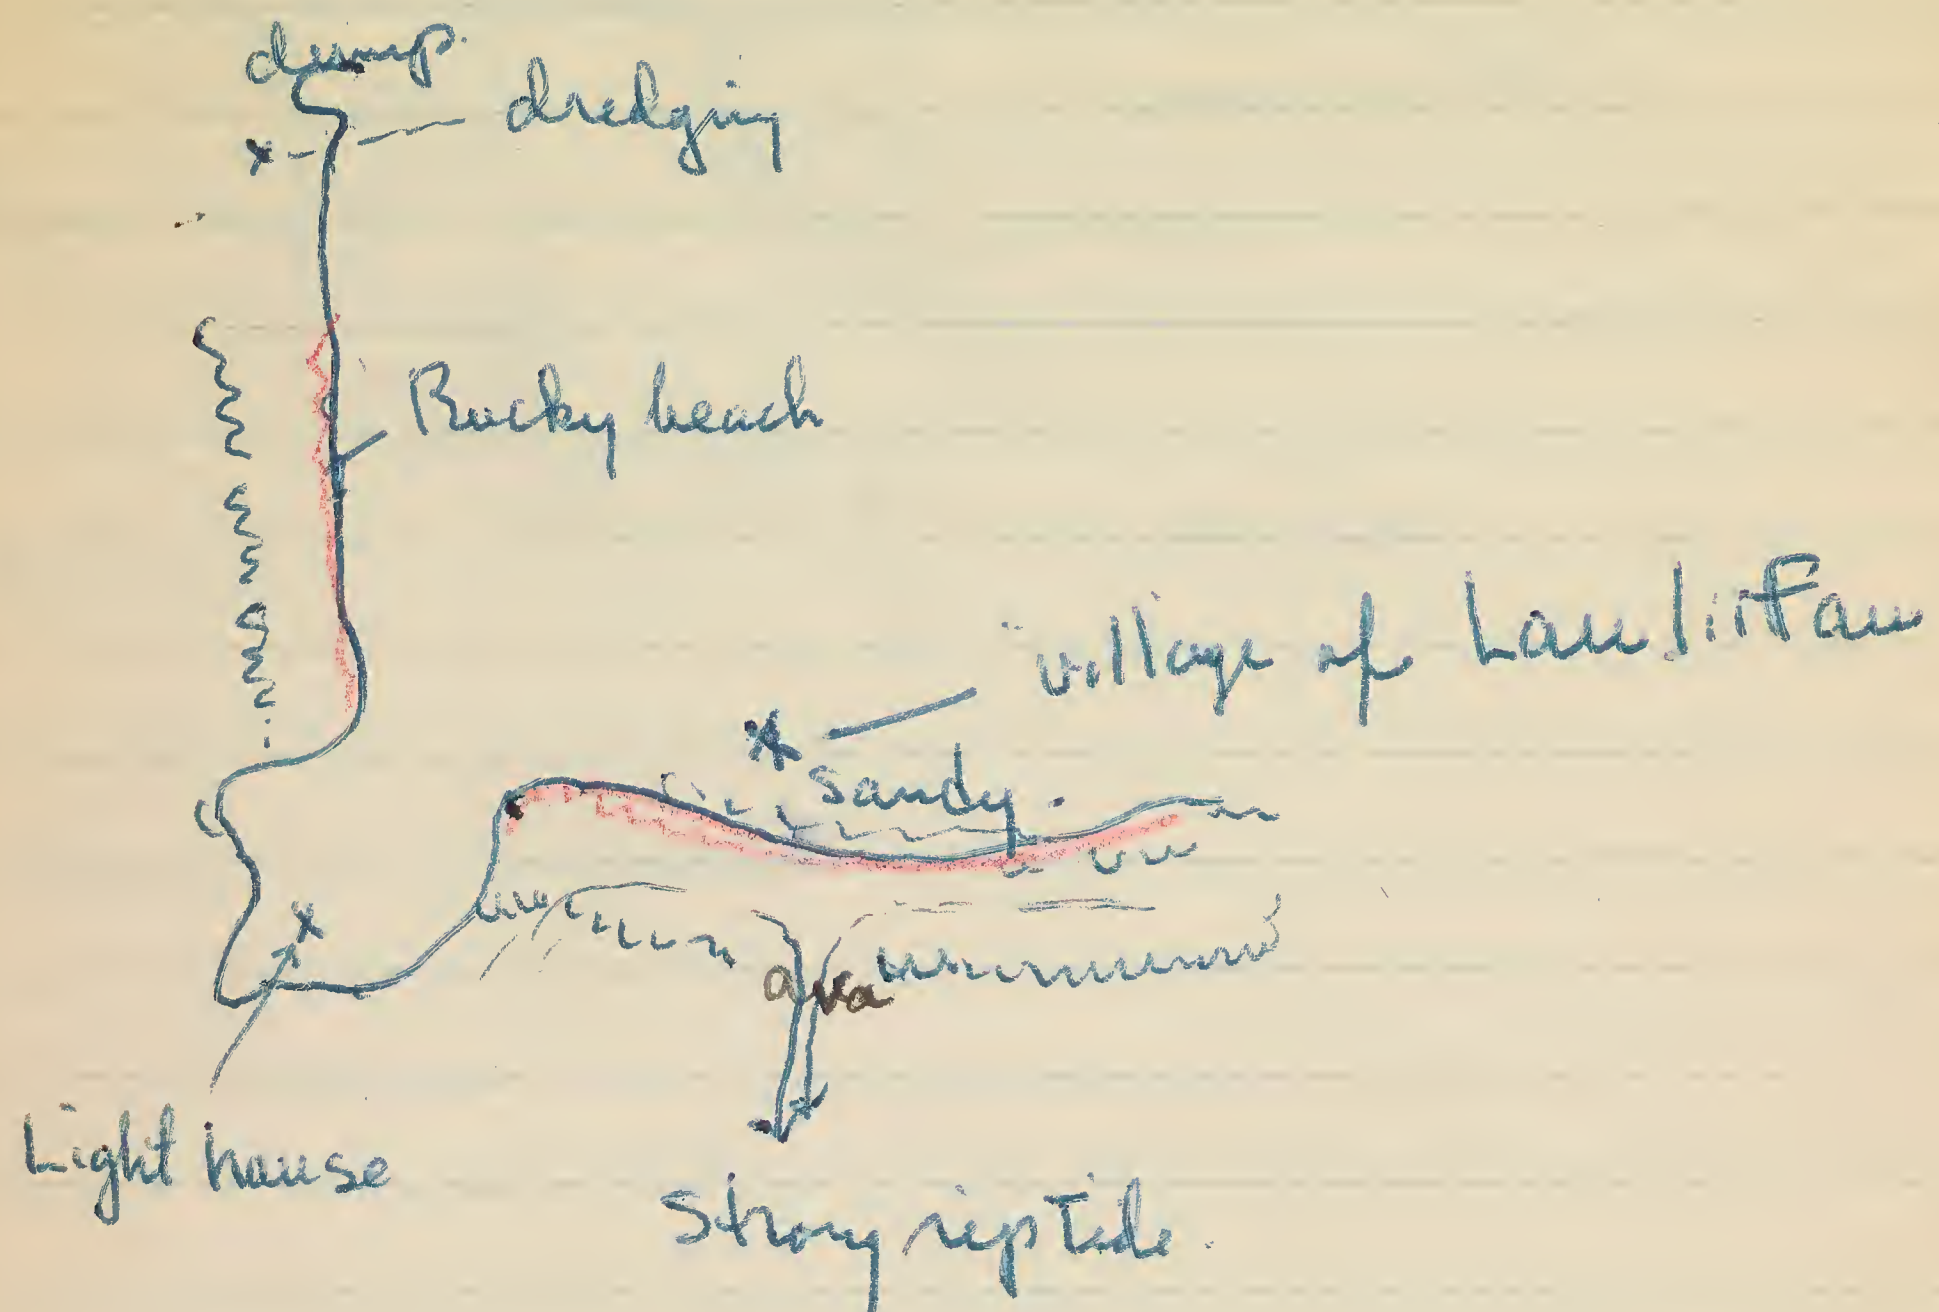 dump.
dredging
Rocky beach
village of
sandy.
ava
Light house
Strong riptide.